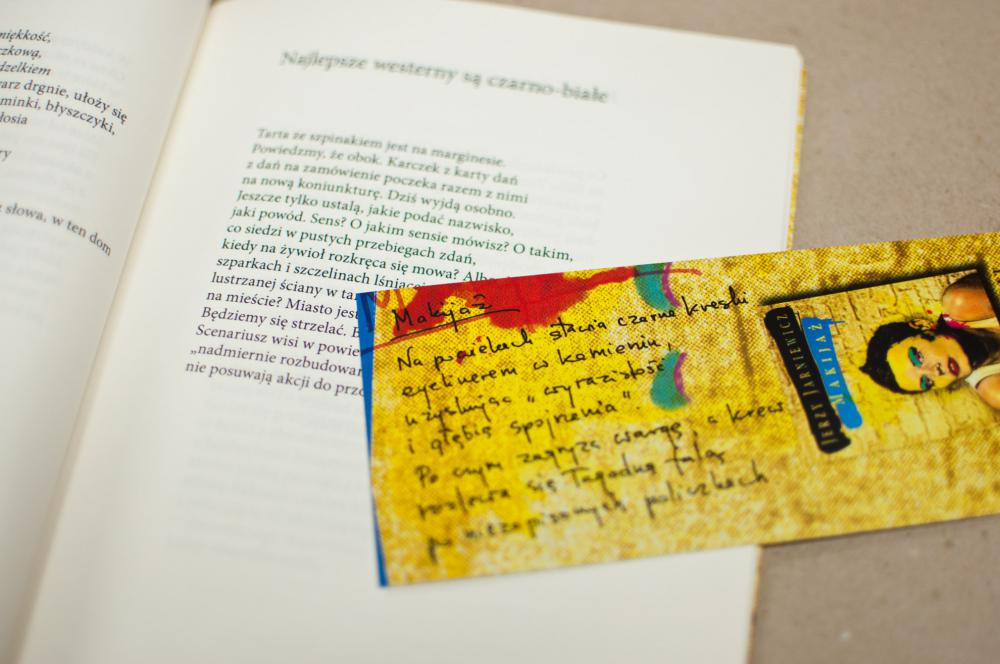 miękkość,
czkową,
dzelkiem
arz drgnie, ułoży się
minki, błyszczyki,
łosia
ry
słowa, w ten dom
Najlepsze westerny są czarno-białe
Tarta ze szpinakiem jest na marginesie.
Powiedzmy, że obok. Karczek z karty dań
z dań na zamówienie poczeka razem z nimi
na nową koniunkturę. Dziś wyjdą osobno.
Jeszcze tylko ustalą, jakie podać nazwisko,
jaki powód. Sens? O jakim sensie mówisz? O takim,
co siedzi w pustych przebiegach zdań,
kiedy na żywioł rozkręca się mowa?
szparkach i szczelinach lśniącej
lustrzanej ściany w ta
na mieście? Miasto jest
Będziemy się strzelać.
Scenariusz wisi w powie
„nadmiernie rozbudowan
nie posuwają akcji do prz
Makijaż
Na powiekach stawia czarne kreski
eyelinerem w kamieniu,
uzyskując „wyrazistość
i głębię spojrzenia"
Po czym zagryza wargę a krew
rozlewa się łagodną falą
po niezapisanych policzkach
JERZY JARNIEWICZ
MAKIJAŻ